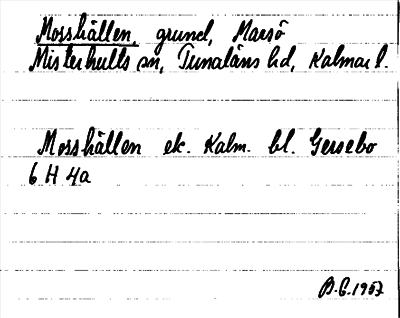 Mosshällen, grund, Marsö
Misterhults sn, Tunaläns hd, Kalmar l.
Mosshällen ek. Kalm. bl. Gersebo
6 H 4a
B.E. 1957